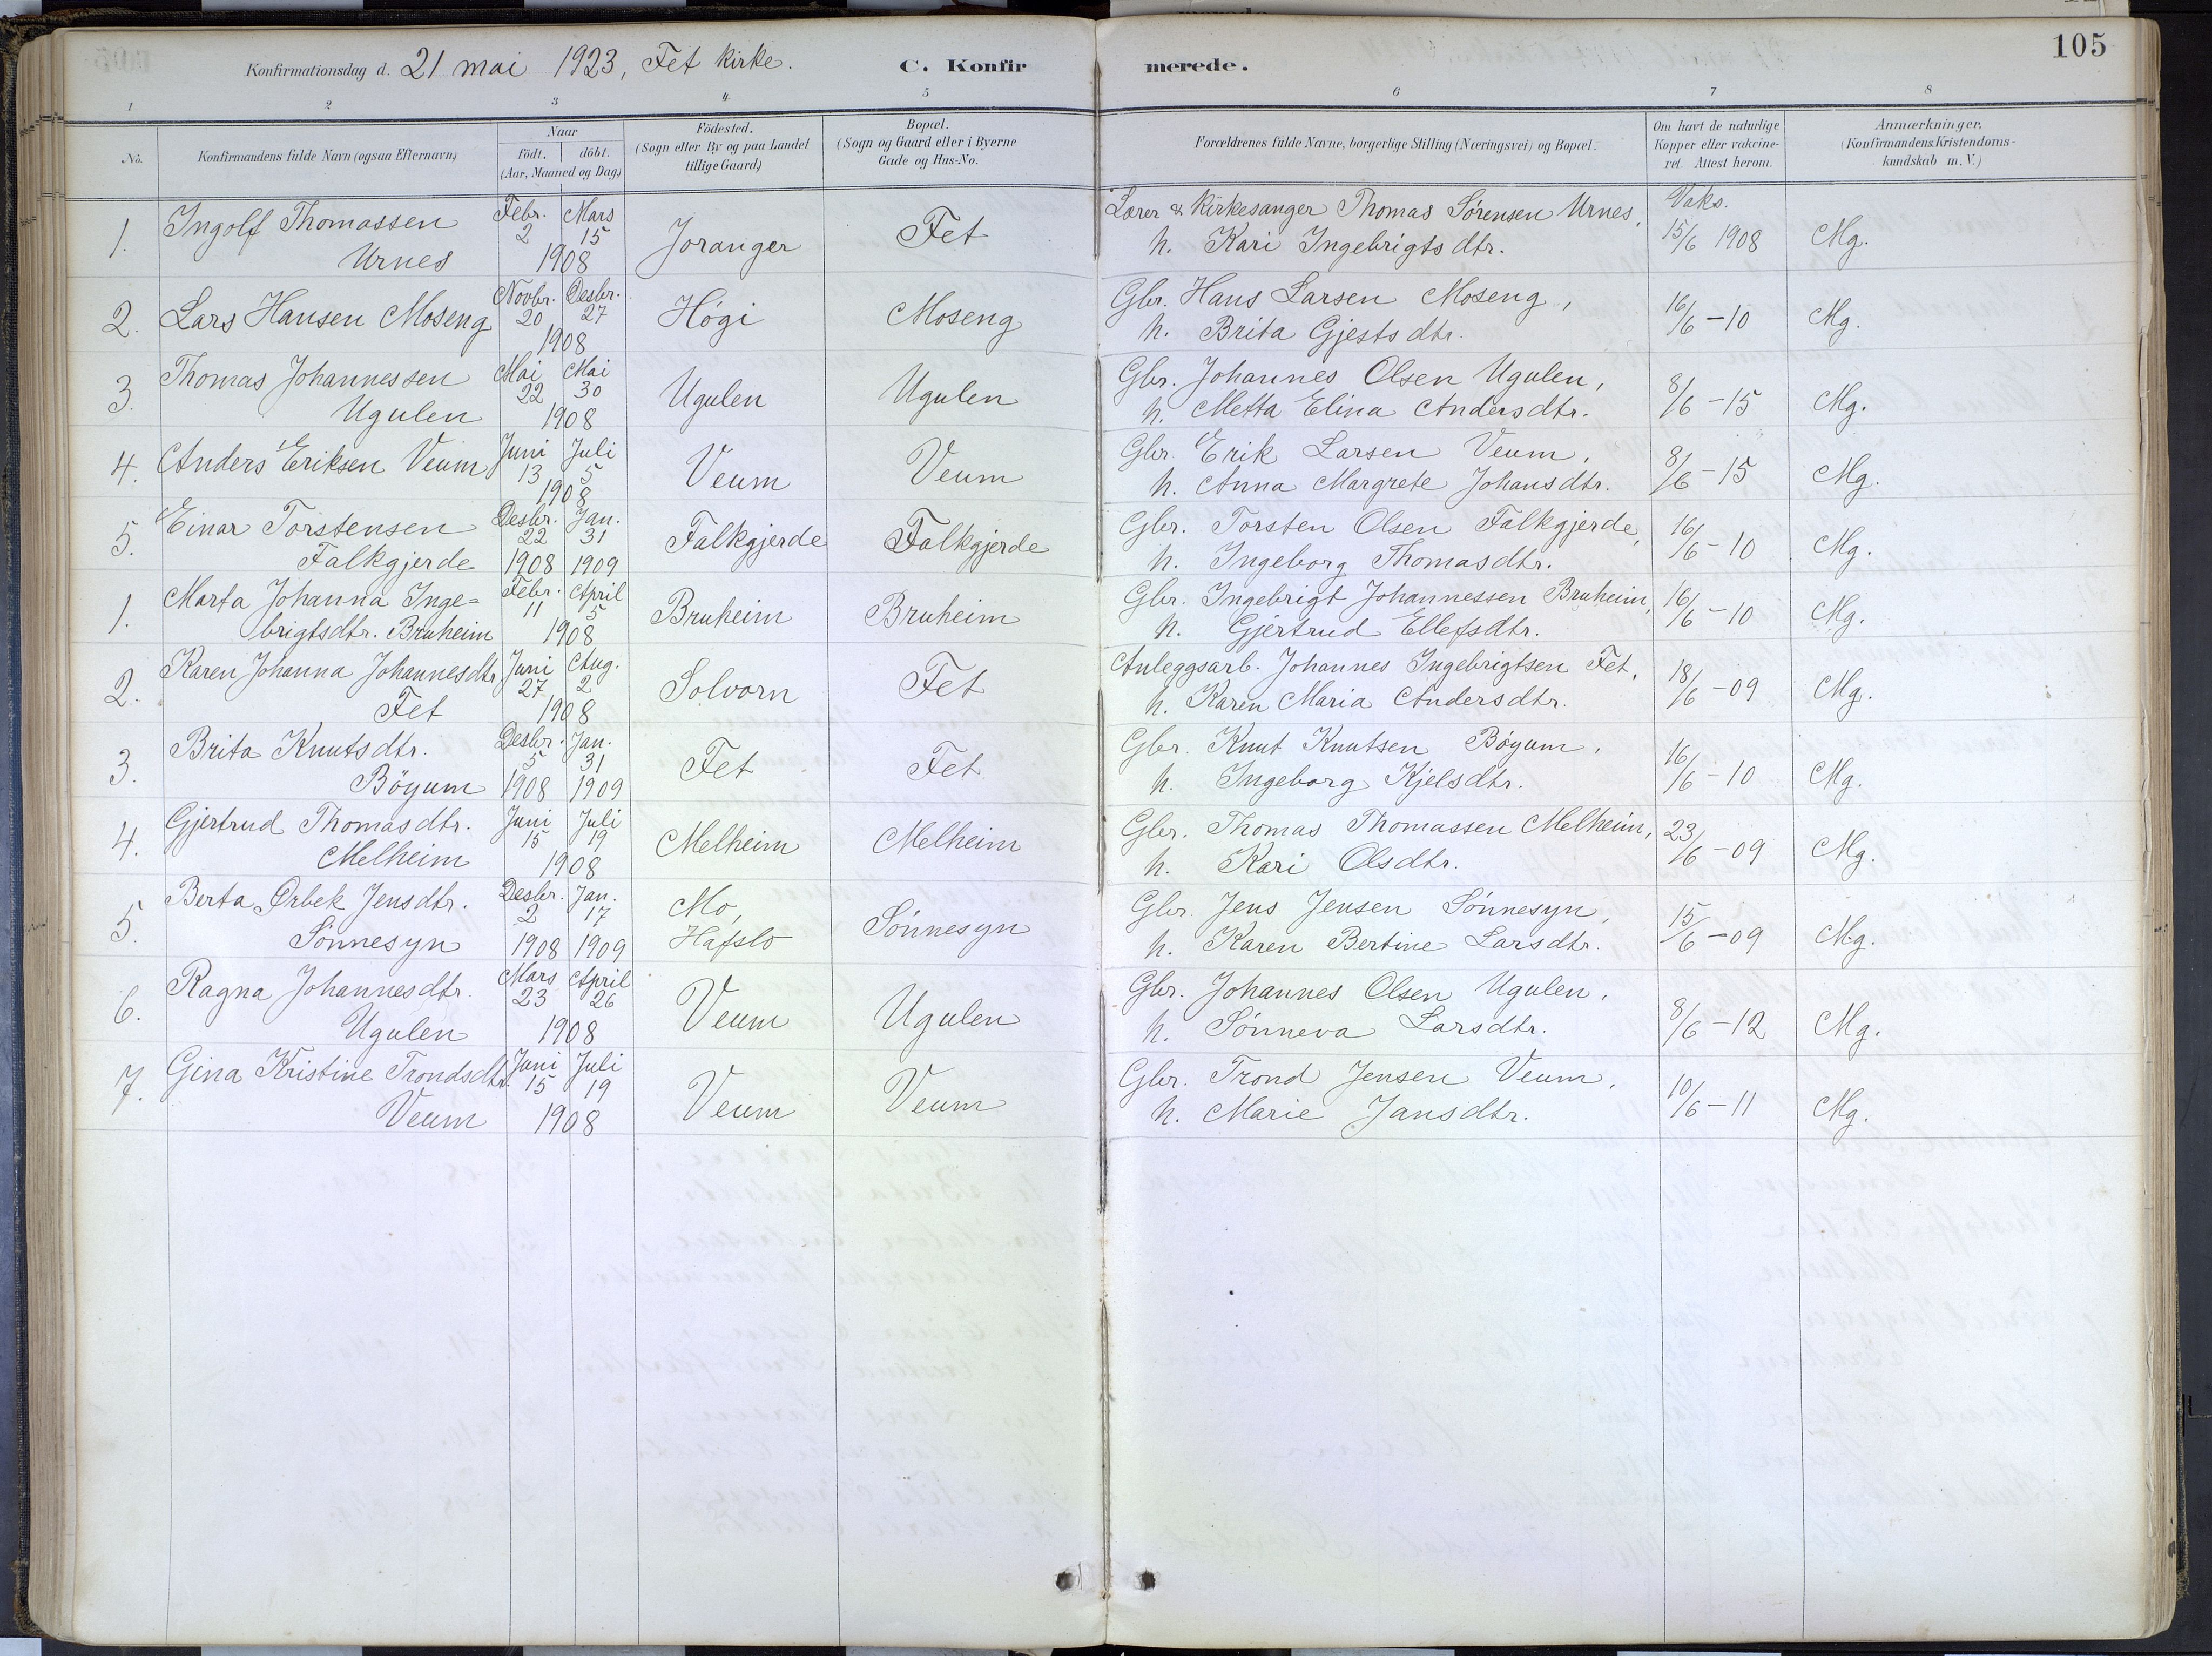 105
Konfirmationsdag d. 21 mai 1923, Fet kirke.
C. Konfirmerede.
1 2 3 4 5 6 7 8
No.
Konfirmandens fulde Navn (ogsaa Efternavn)
Naar
födt. döbt.
(Aar, Maaned og Dag)
Födested.
(Sogn eller By og paa Landet
tillige Gaard)
Bopæl.
(Sogn og Gaard eller i Byerne
Gade og Hus-No.
Forældrenes fulde Navne, borgerlige Stilling (Næringsvei) og Bopæl.
Om havt de naturlige
Kopper eller vakcine-
ret. Attest herom.
Anmærkninger,
(Konfirmandens Kristendoms-
kundskab m. V.)
1. Ingolf Thomassen Febr. Mars
2 15
Urnes 1908
Joranger Fet
Lærer & Kirkesanger Thomas Sörensen Urnes,
h. Kari Ingebrigtsdtr.
Vaks.
15/6 1908 Mg.
2. Lars Hansen Moseng Novbr. Desbr.
20 27
1908
Högi Moseng
Gbr. Hans Larsen Moseng,
h. Brita Gjestsdtr.
16/6-10 Mg.
3. Thomas Johannessen Mai Mai
22 30
Ugulen 1908
Ugulen Ugulen
Gbr. Johannes Olsen Ugulen,
h. Metta Elina Andersdtr.
8/6-15 Mg.
4. Anders Eriksen Veum Juni Juli
13 5
1908
Veum Veum
Gbr. Erik Larsen Veum,
h. Anna Margrete Johansdtr.
8/6-15 Mg.
5. Einar Torstensen Desbr. Jan.
22 31
Falkgjerde 1908 1909
Falkgjerde Falkgjerde
Gbr. Torsten Olsen Falkgjerde,
h. Ingeborg Thomasdtr.
16/6-10 Mg.
1. Marta Johanna Inge- Febr. April
11 5
brigtsdtr. Bruheim 1908
Bruheim Bruheim
Gbr. Ingebrigt Johannessen Bruheim,
h. Gjertrud Ellefsdtr.
16/6-10 Mg.
2. Karen Johanna Johannesdtr. Juni Aug.
27 2
Fet 1908
Solvorn Fet
Anleggsarb. Johannes Ingebrigtsen Fet,
h. Karen Maria Andersdtr.
18/6-09 Mg.
3. Brita Knutsdtr. Desbr. Jan.
5 31
Böyum 1908 1909
Fet Fet
Gbr. Knut Knutsen Böyum,
h. Ingeborg Kjelsdtr.
16/6-10 Mg.
4. Gjertrud Thomasdtr. Juni Juli
15 19
Melheim 1908
Melheim Melheim
Gbr. Thomas Thomassen Melheim,
h. Kari Olsdtr.
23/6-09 Mg.
5. Berta Ørbek Jensdtr. Desbr. Jan.
2 17
Sönnesyn 1908 1909
Mo,
Hafslo
Sönnesyn
Gbr. Jens Jensen Sönnesyn,
h. Karen Bertine Larsdtr.
15/6-09 Mg.
6. Ragna Johannesdtr. Mars April
23 26
Ugulen 1908
Veum Ugulen
Gbr. Johannes Olsen Ugulen,
h. Sönneva Larsdtr.
8/6-12 Mg.
7. Gina Kristine Trondsdtr. Juni Juli
15 19
Veum 1908
Veum Veum
Gbr. Trond Jensen Veum,
h. Marie Jansdtr.
10/6-11 Mg.